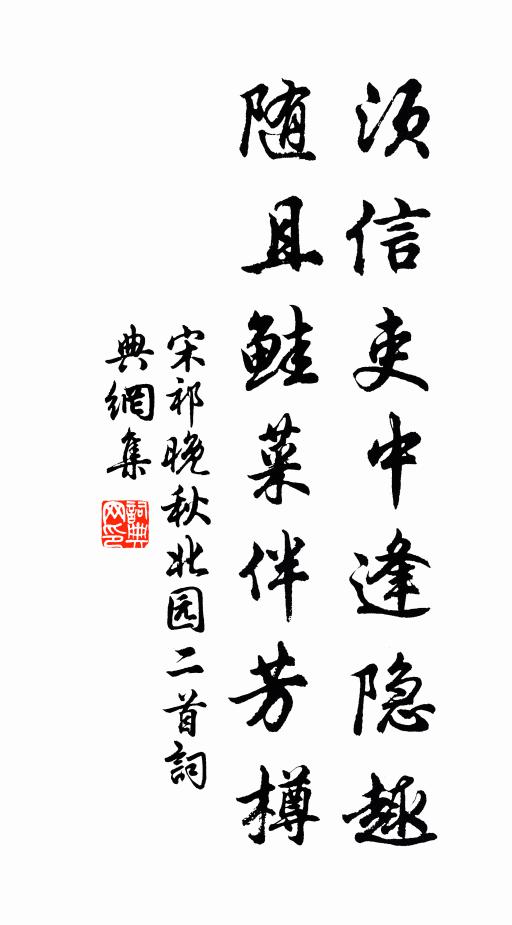 须信吏中逢隐趣
随且鲑菜伴芳樽
宋祁晚秋北园二首詞
典網集
詞典网印